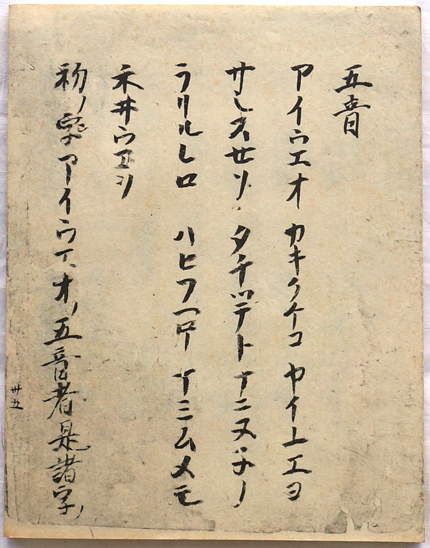 五音
アイウエオ カキクケコ ヤイユエヨ
サシスセソ タチツテト ナニヌネノ
ラリルレロ ハヒフヘホ マミムメモ
禾井ウヱヲ
初ノ字アイウエオノ五音者是諸字ノ
卅五